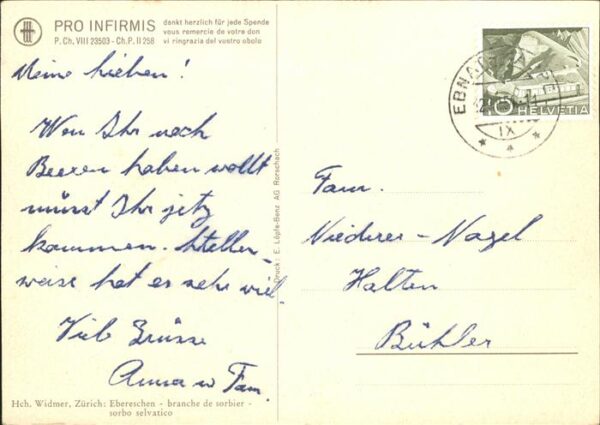 PRO INFIRMIS
P. Ch. VIII 23503 - Ch. P. II 258
dankt herzlich für jede Spende
vous remercie de votre don
vi ringrazia del vostro obolo
Meine Lieben!
Wen Ihr noch
Beeren haben wollt
müsst Ihr jetz
kommen. Stellen-
weise hat es sehr viel.
Viele Grüsse
Anna u Fam.
Hch. Widmer, Zürich: Ebereschen - branche de sorbier -
sorbo selvatico
Druck: E. Löpfe-Benz AG Rorschach
EBNAT
IX
10 HELVETIA
Fam.
Niederer-Nagel
Halten
Bühler